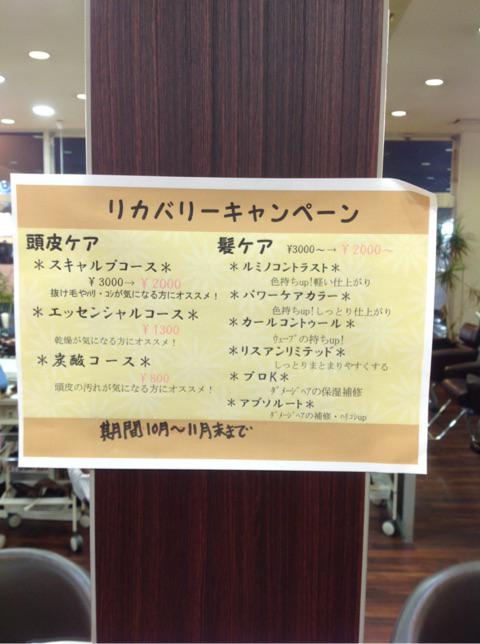 リカバリーキャンペーン
頭皮ケア
＊スキャルプコース＊
¥3000→ ¥2000
抜け毛やﾊﾘ・ｺｼが気になる方にオススメ！
＊エッセンシャルコース＊
¥1300
乾燥が気になる方にオススメ！
＊炭酸コース＊
¥800
頭皮の汚れが気になる方にオススメ！
髪ケア ¥3000～→ ¥2000～
＊ルミノコントラスト＊
色持ちup!軽い仕上がり
＊パワーケアカラー＊
色持ちup!しっとり仕上がり
＊カールコントゥール＊
ｳｪｰﾌﾞの持ちup!
＊リスアンリミテッド＊
しっとりまとまりやすくする
＊プロK＊
ﾀﾞﾒｰｼﾞﾍｱの保湿補修
＊アブソルート＊
ﾀﾞﾒｰｼﾞﾍｱの補修・ﾊﾘｺｼup
期間10月～11月末まで